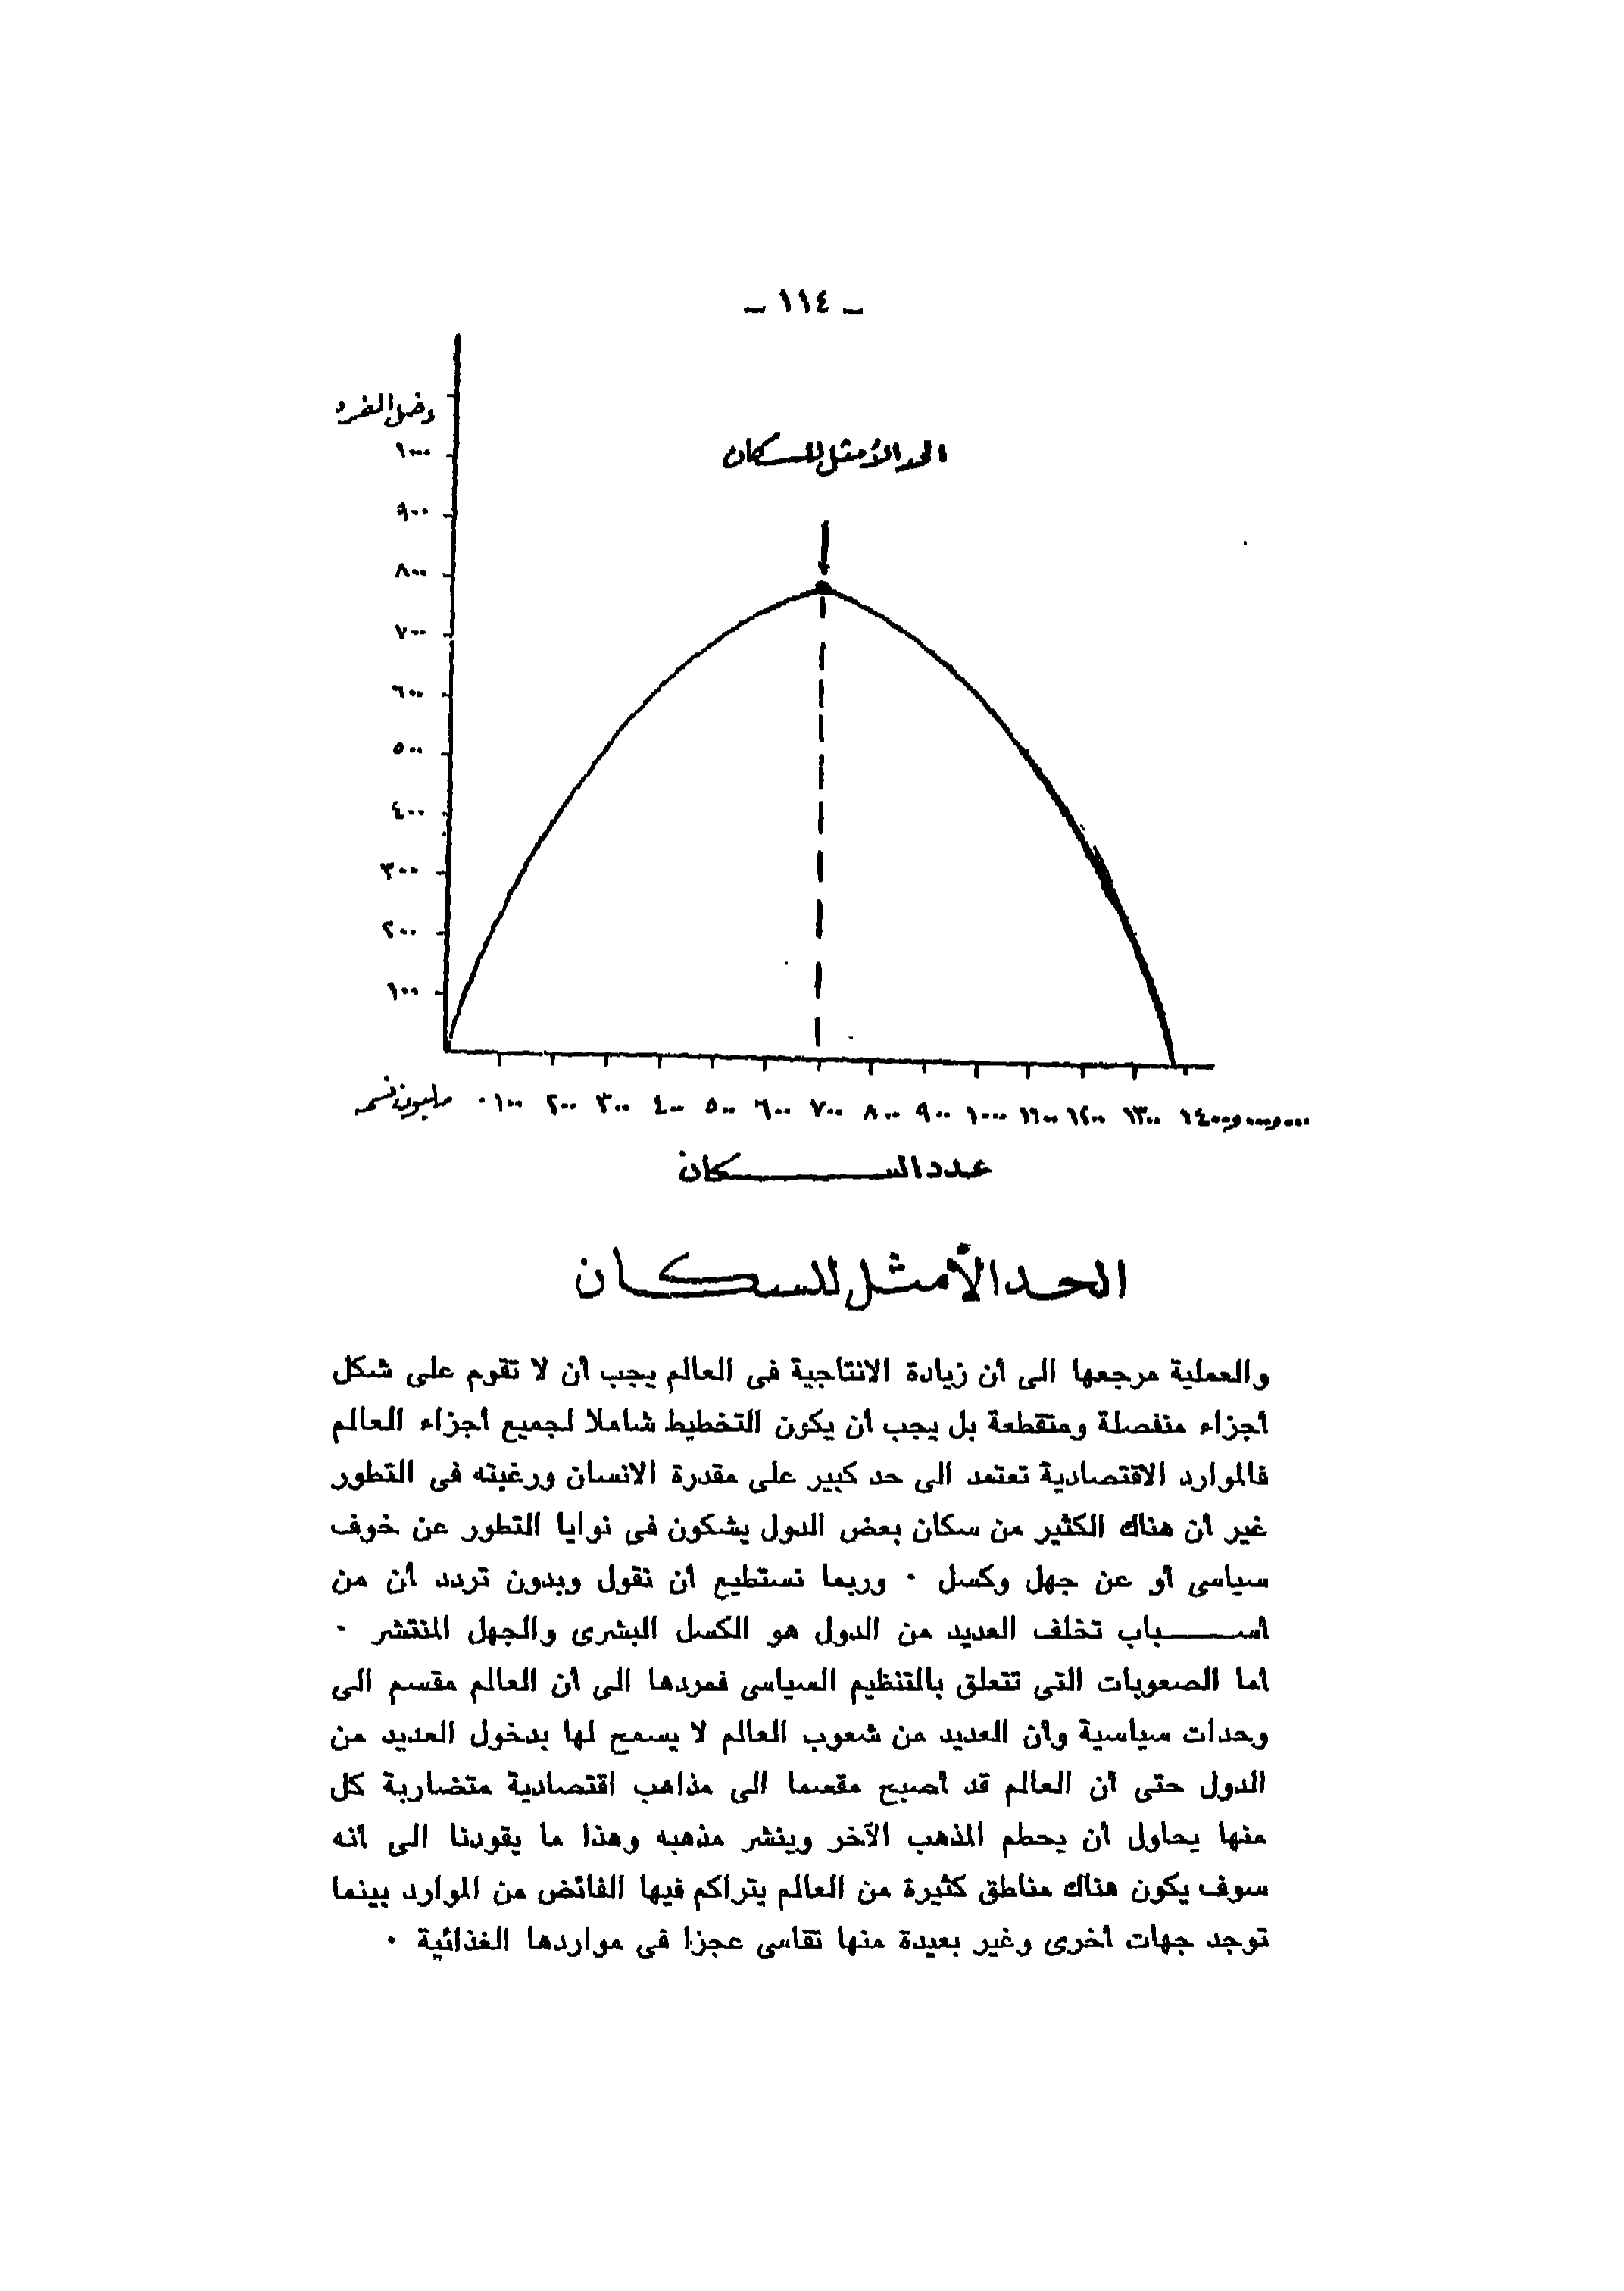 ـ ١١٤ ـ
دخل الفرد
الحد الأمثل للسكان
١٠٠٠
٩٠٠
٨٠٠
٧٠٠
٦٠٠
٥٠٠
٤٠٠
٣٠٠
٢٠٠
١٠٠
مليون نسمه ١٠٠ ٢٠٠ ٣٠٠ ٤٠٠ ٥٠٠ ٦٠٠ ٧٠٠ ٨٠٠ ٩٠٠ ١٠٠٠ ١١٠٠ ١٢٠٠ ١٣٠٠ ١٤٠٠و٠٠٠و٠٠٠
عدد السكان
الحد الأمثل للسكان
والعملية مرجعها الى أن زيادة الانتاجية فى العالم يجب أن لا تقوم على شكل
أجزاء منفصلة ومتقطعة بل يجب أن يكون التخطيط شاملا لجميع أجزاء العالم
فالموارد الاقتصادية تعتمد الى حد كبير على مقدرة الانسان ورغبته فى التطور
غير أن هناك الكثير من سكان بعض الدول يشكون فى نوايا التطور عن خوف
سياسى أو عن جهل وكسل ٠ وربما نستطيع أن نقول وبدون تردد أن من
أســـــباب تخلف العديد من الدول هو الكسل البشرى والجهل المنتشر ٠
أما الصعوبات التى تتعلق بالتنظيم السياسى فمردها الى أن العالم مقسم الى
وحدات سياسية وأن العديد من شعوب العالم لا يسمح لها بدخول العديد من
الدول حتى أن العالم قد أصبح مقسما الى مذاهب اقتصادية متضاربة كل
منها يحاول أن يحطم المذهب الآخر وينشر مذهبه وهذا ما يقودنا الى أنه
سوف يكون هناك مناطق كثيرة من العالم يتراكم فيها الفائض من الموارد بينما
توجد جهات أخرى وغير بعيدة منها تقاسى عجزا فى مواردها الغذائية ٠